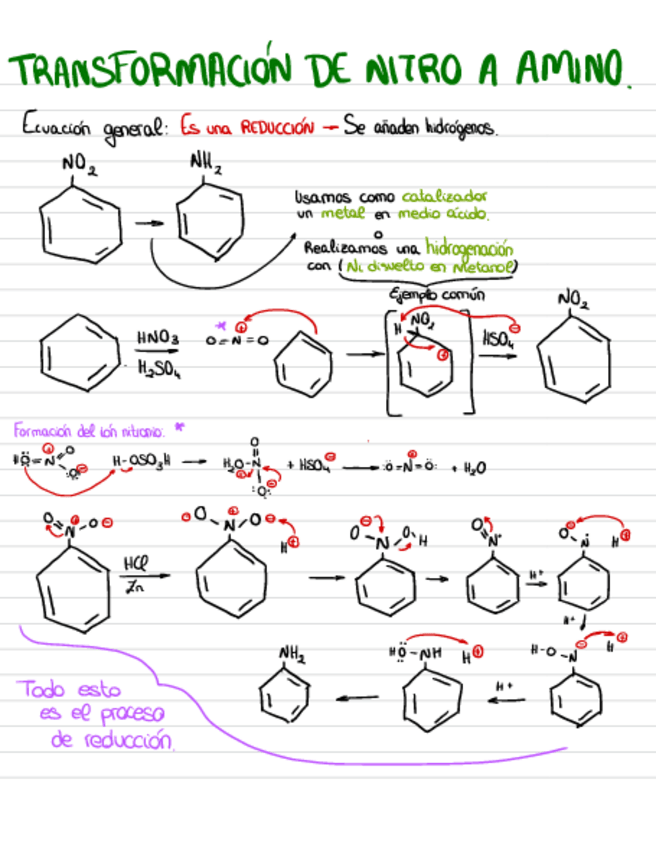 TRANSFORMACIÓN DE NITRO A AMINO.
Ecuación general: Es una REDUCCIÓN – Se añaden hidrógenos.
NO2 NH2
Usamos como catalizador
un metal en medio ácido.
o
Realizamos una hidrogenación
con (Ni disuelto en Metanol)
Ejemplo común
NO2
HNO3
H2SO4
* ⊕
O=N=O
H NO2
⊕
⊖
HSO4
Formación del ión nitronio: *
HÖ=N O ⊕ O ⊖ H-OSO3H
H2O-N O ⊕ O ⊖ + HSO4⊖ :Ö=N=Ö: ⊕ + H2O
O=N-O ⊕ ⊖
HCl
Zn
⊖O-N-O⊖ ⊕ H⊕
⊖ O-N-O-H
O=N
H+
O⊖ N H⊕
H+
NH2
HÖ-NH H⊕
H+
H-O-N ⊖ H⊕
Todo esto
es el proceso
de reducción.